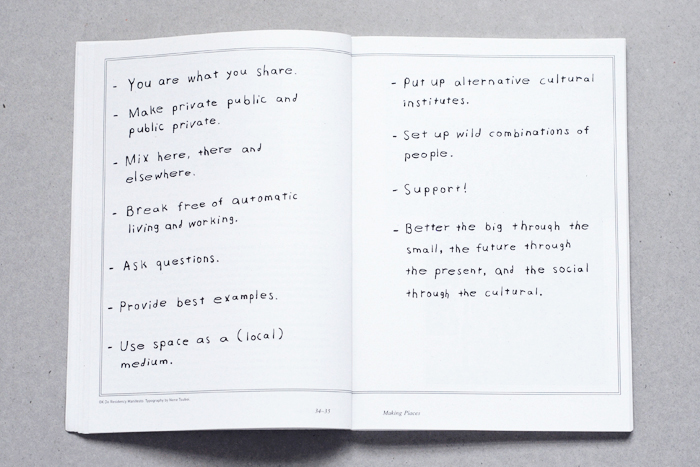 - You are what you share.
- Make private public and
public private.
- Mix here, there and
elsewhere.
- Break free of automatic
living and working.
- Ask questions.
- Provide best examples.
- Use space as a (local)
medium.
54–55
- Put up alternative cultural
institutes.
- Set up wild combinations of
people.
- Support!
- Better the big through the
small, the future through
the present, and the social
through the cultural.
Making Places